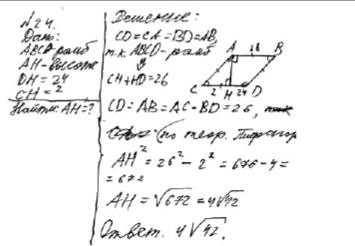 № 24.
Дано:
ABCD-ромб
AH-высота
DH = 24
CH = 2
Найти: AH = ?
Решение:
CD = CA = BD = AB,
т.к. ABCD-ромб
CH + HD = 26
A 26 B
C 2 H 24 D
CD = AB = AC - BD = 26,
(по теор. Пифагор
AH² = 26² - 2² = 676 - 4 =
= 672
AH = √672 = 4√42
Ответ. 4√42.